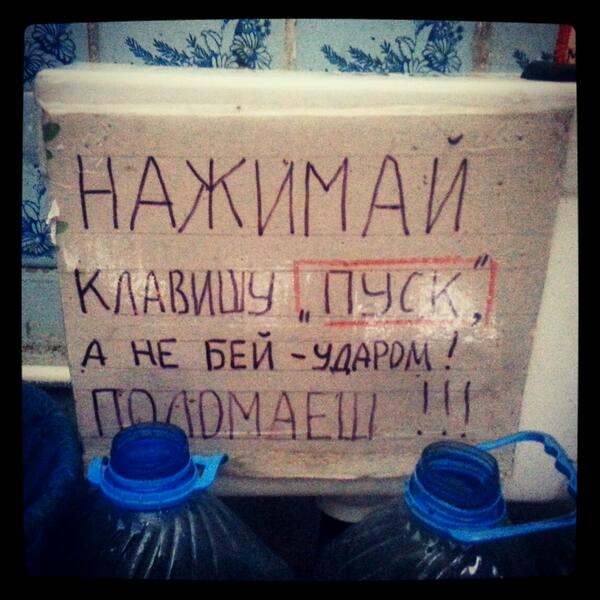 НАЖИМАЙ
КЛАВИШУ „ПУСК”,
А НЕ БЕЙ - УДАРОМ!
ПОЛОМАЕШ !!!